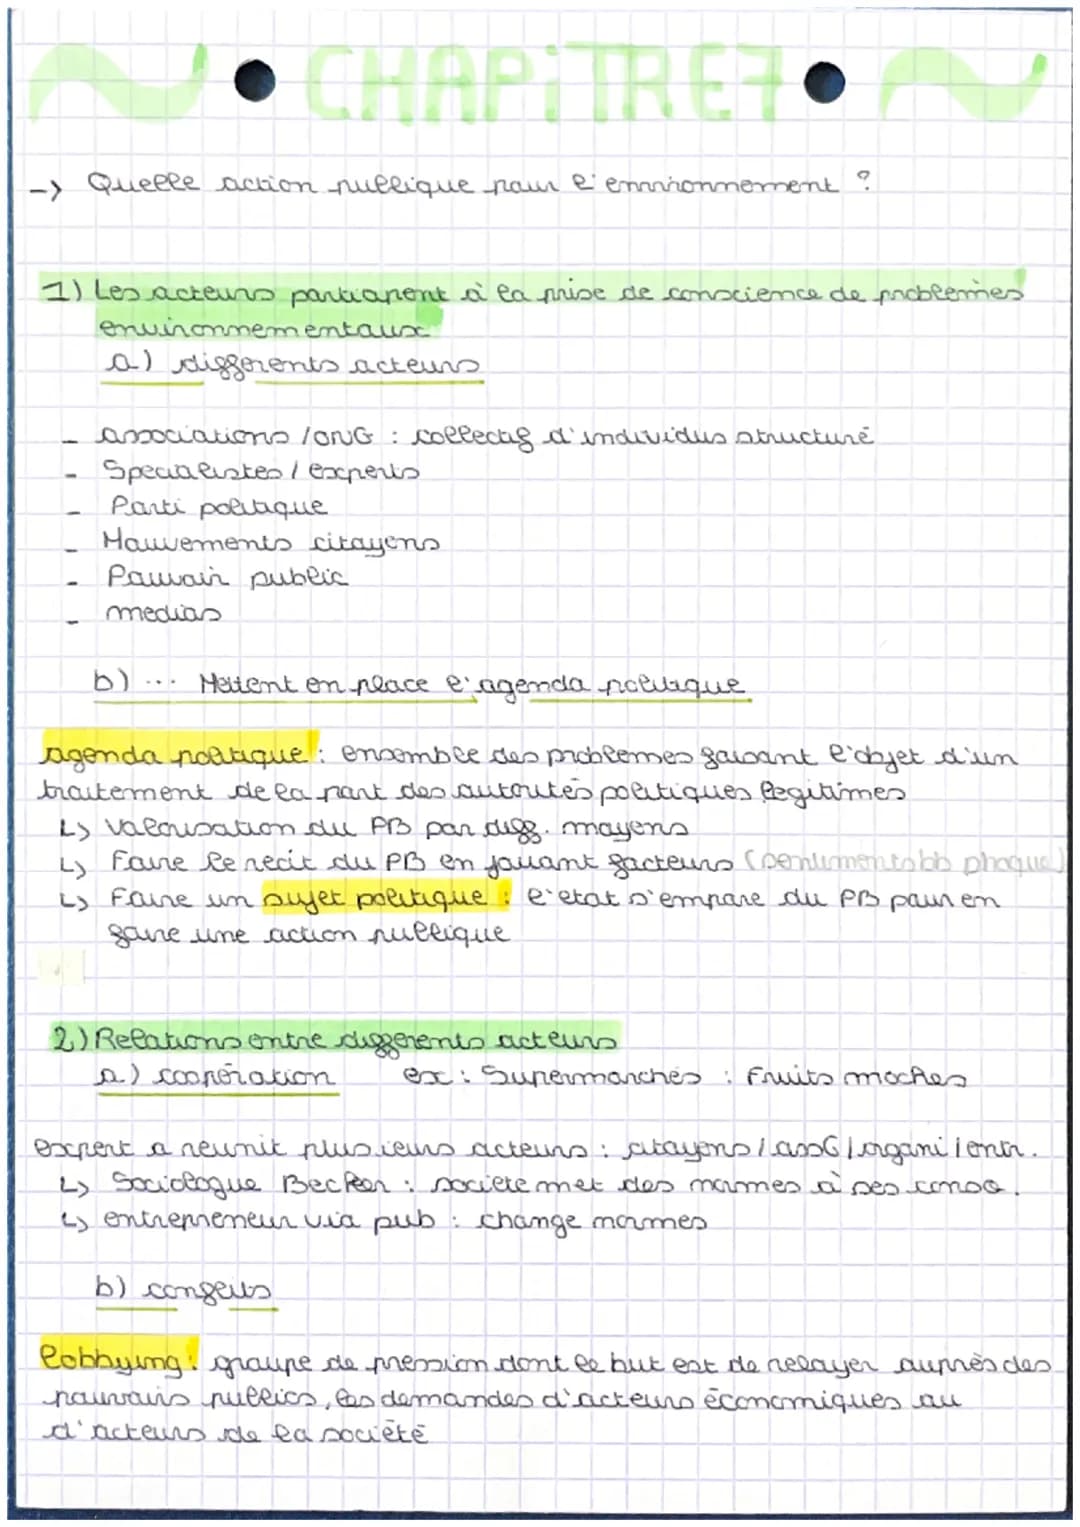 CHAPiTRE7
-> Quelle action publique pour l'environnement ?
1) Les acteurs participent à la prise de conscience de problèmes
environnementaux
a) différents acteurs
- associations / ONG : collectif d'individus structuré
- Specialistes / experts
- Parti politique
- Mouvements citoyens
- Pouvoir public
- medias
b) ... Mettent en place l'agenda politique
agenda politique : ensemble des problemes faisant l'objet d'un
traitement de la part des autorités politiques legitimes
↳ Valorisation du PB par diff. moyens
↳ Faire le recit du PB en jouant facteurs (sentiments bb phoque)
↳ Faire un sujet politique : l'etat s'empare du PB pour en
faire une action publique
2) Relations entre differents acteurs
a) coopération ex : Supermarchés : Fruits moches
expert a reunit plusieurs acteurs : citoyens / assG / organi / entr.
↳ Sociologue Becker : societe met des normes à ses conso.
↳ entrepreneur via pub : change normes
b) conflits
lobbying : groupe de pression dont le but est de relayer auprès des
pouvoirs publics, les demandes d'acteurs économiques ou
d'acteurs de la société